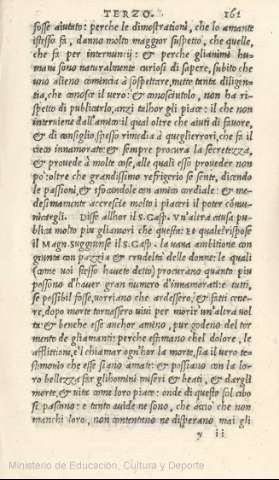 TERZO. 161
fosse aiutato: perche le dimostrationi, che lo amante
istesso fa, danno molto maggior suspetto, che quelle,
che fa per internuntij: & perche gli animi hu=
mani sono naturalmente curiosi di sapere, subito che
uno alieno comincia à sospettare, mette tanta diligen=
tia, che conosce il uero: & conosciutolo, non ha ri=
spetto di publicarlo, anzi talhor gli piace: il che non
interuiene dell'amico: il qual oltre che aiuti di fauore,
& di consiglio, spesso rimedia à quegli errori, che fa il
cieco innamorato: & sempre procura la secretezza,
& prouede à molte cose, alle quali esso proueder non
po: oltre che grandissimo refrigerio se sente, dicendo
le passioni, & sfocandole con amico cordiale: & me=
desimamente accresce molto i piaceri il poter cõmu=
nicargli. Disse allhor il S. Gasp. Vn'altra causa pu=
blica molto piu gli amori che questa: Et quale? rispose
il Magn. Suggiunse il S. Gasp. La uana ambitione con
giunta con pazzia & crudeltà delle donne: le quali
(come uoi stesso hauete detto) procurano quanto piu
possono d'hauer gran numero d'innamorati: & tutti,
se possibil fosse, uorriano che ardessero, & fatti cene=
re, dopo morte tornassero uiui per morir un'altra uol
ta: & benche esse anchor amino, pur godeno del tor
mento de gli amanti: perche estimano che'l dolore, le
afflittioni, e'l chiamar ogn'hor la morte, sia il uero te=
stimonio che esse siano amate: & possiano con la lo=
ro bellezza far gli homini miseri & beati, & dargli
morte, & uita come loro piace: onde di questo sol cibo
si pascono: & tanto auide ne sono, che accio che non
manchi loro, non contentano ne disperano mai gli
y ii
Ministerio de Educación, Cultura y Deporte